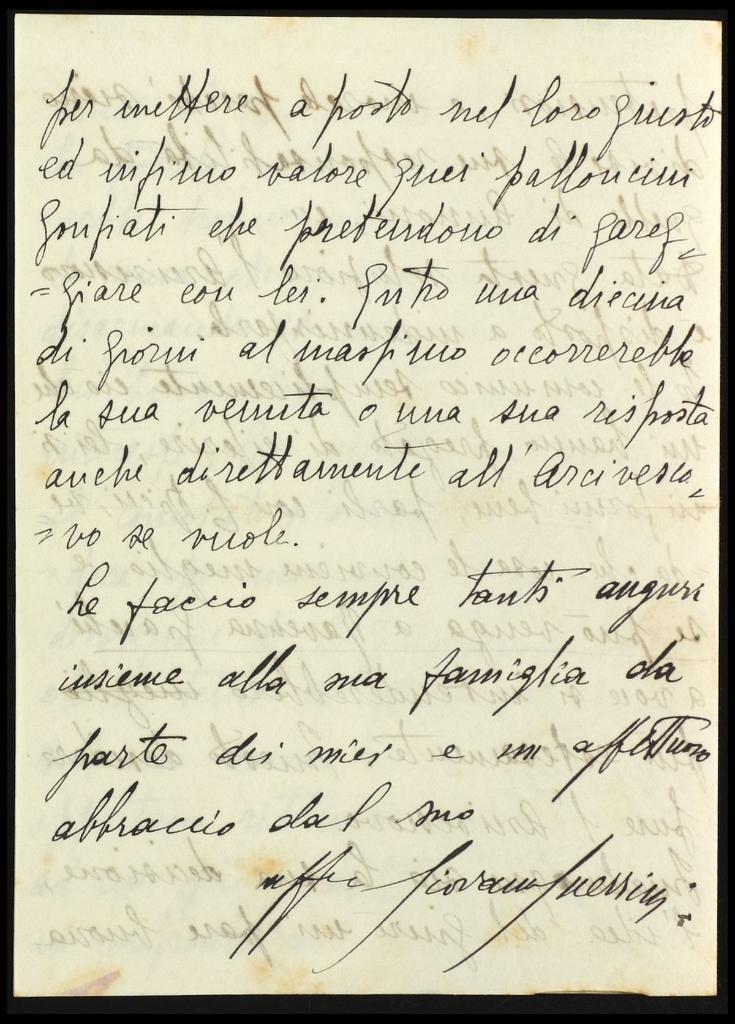 per mettere a posto nel loro giusto
ed infimo valore quei palloncini
gonfiati che pretendono di gareg=
=giare con lei. Entro una diecina
di giorni al massimo occorrerebbe
la sua venuta o una sua risposta
anche direttamente all'Arcivesco=
=vo se vuole.
Le faccio sempre tanti auguri
insieme alla sua famiglia da
parte dei miei e un affettuoso
abbraccio dal suo
Giovanni Guerrini